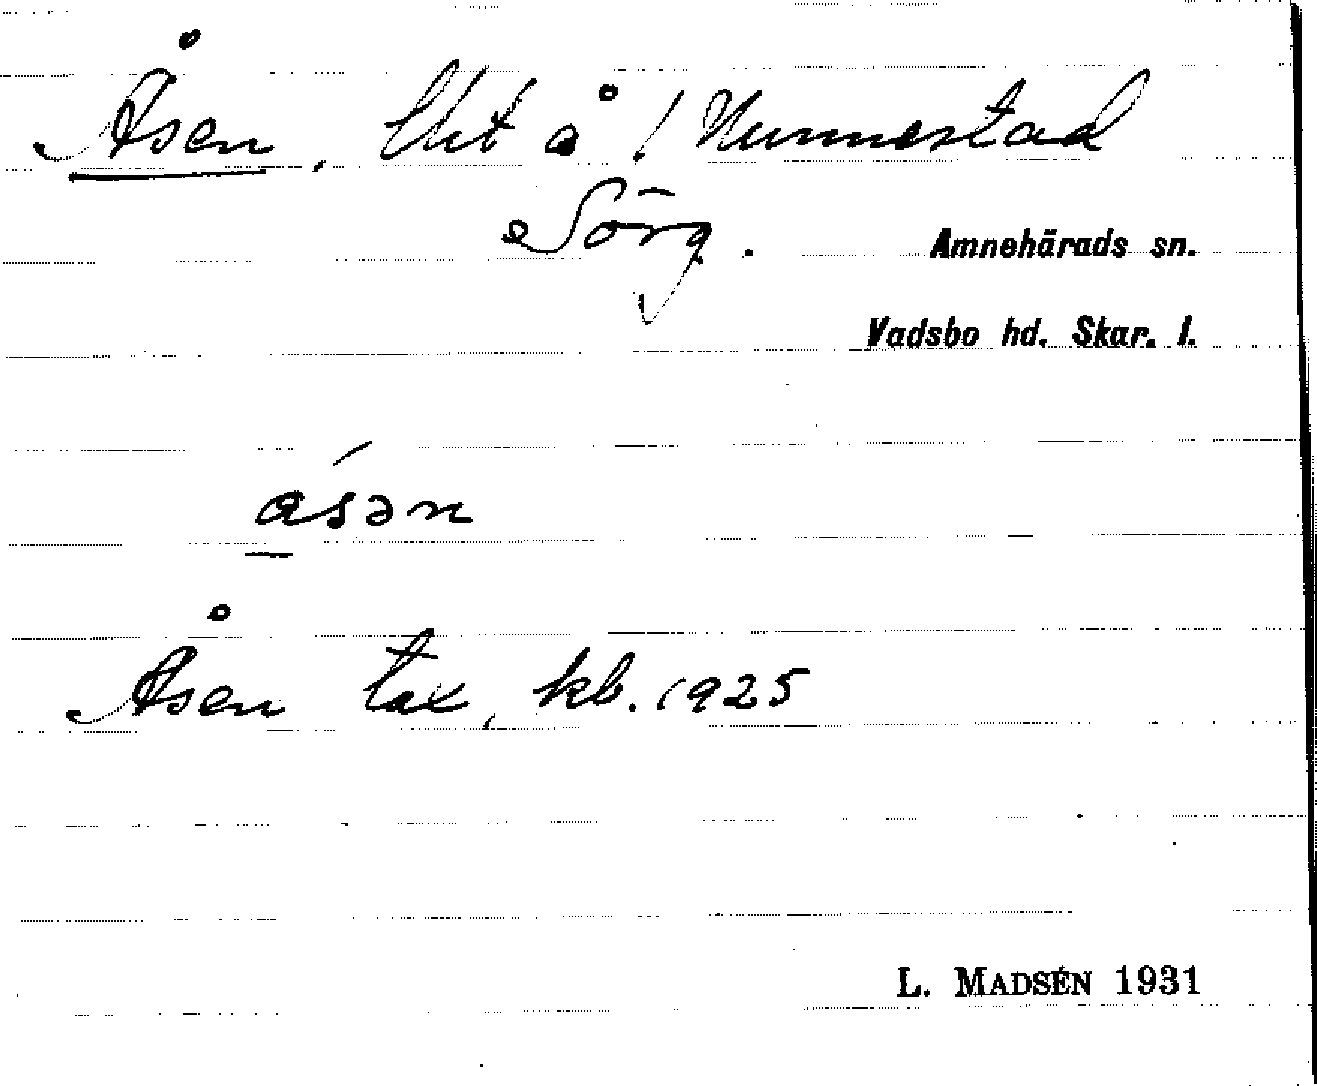 Åsen, lht å 1 Hunnestad
Sörg.
Amnehärads sn.
Vadsbo hd. Skar. l.
ásən
Åsen tax, kb. 1925
L. MADSÉN 1931